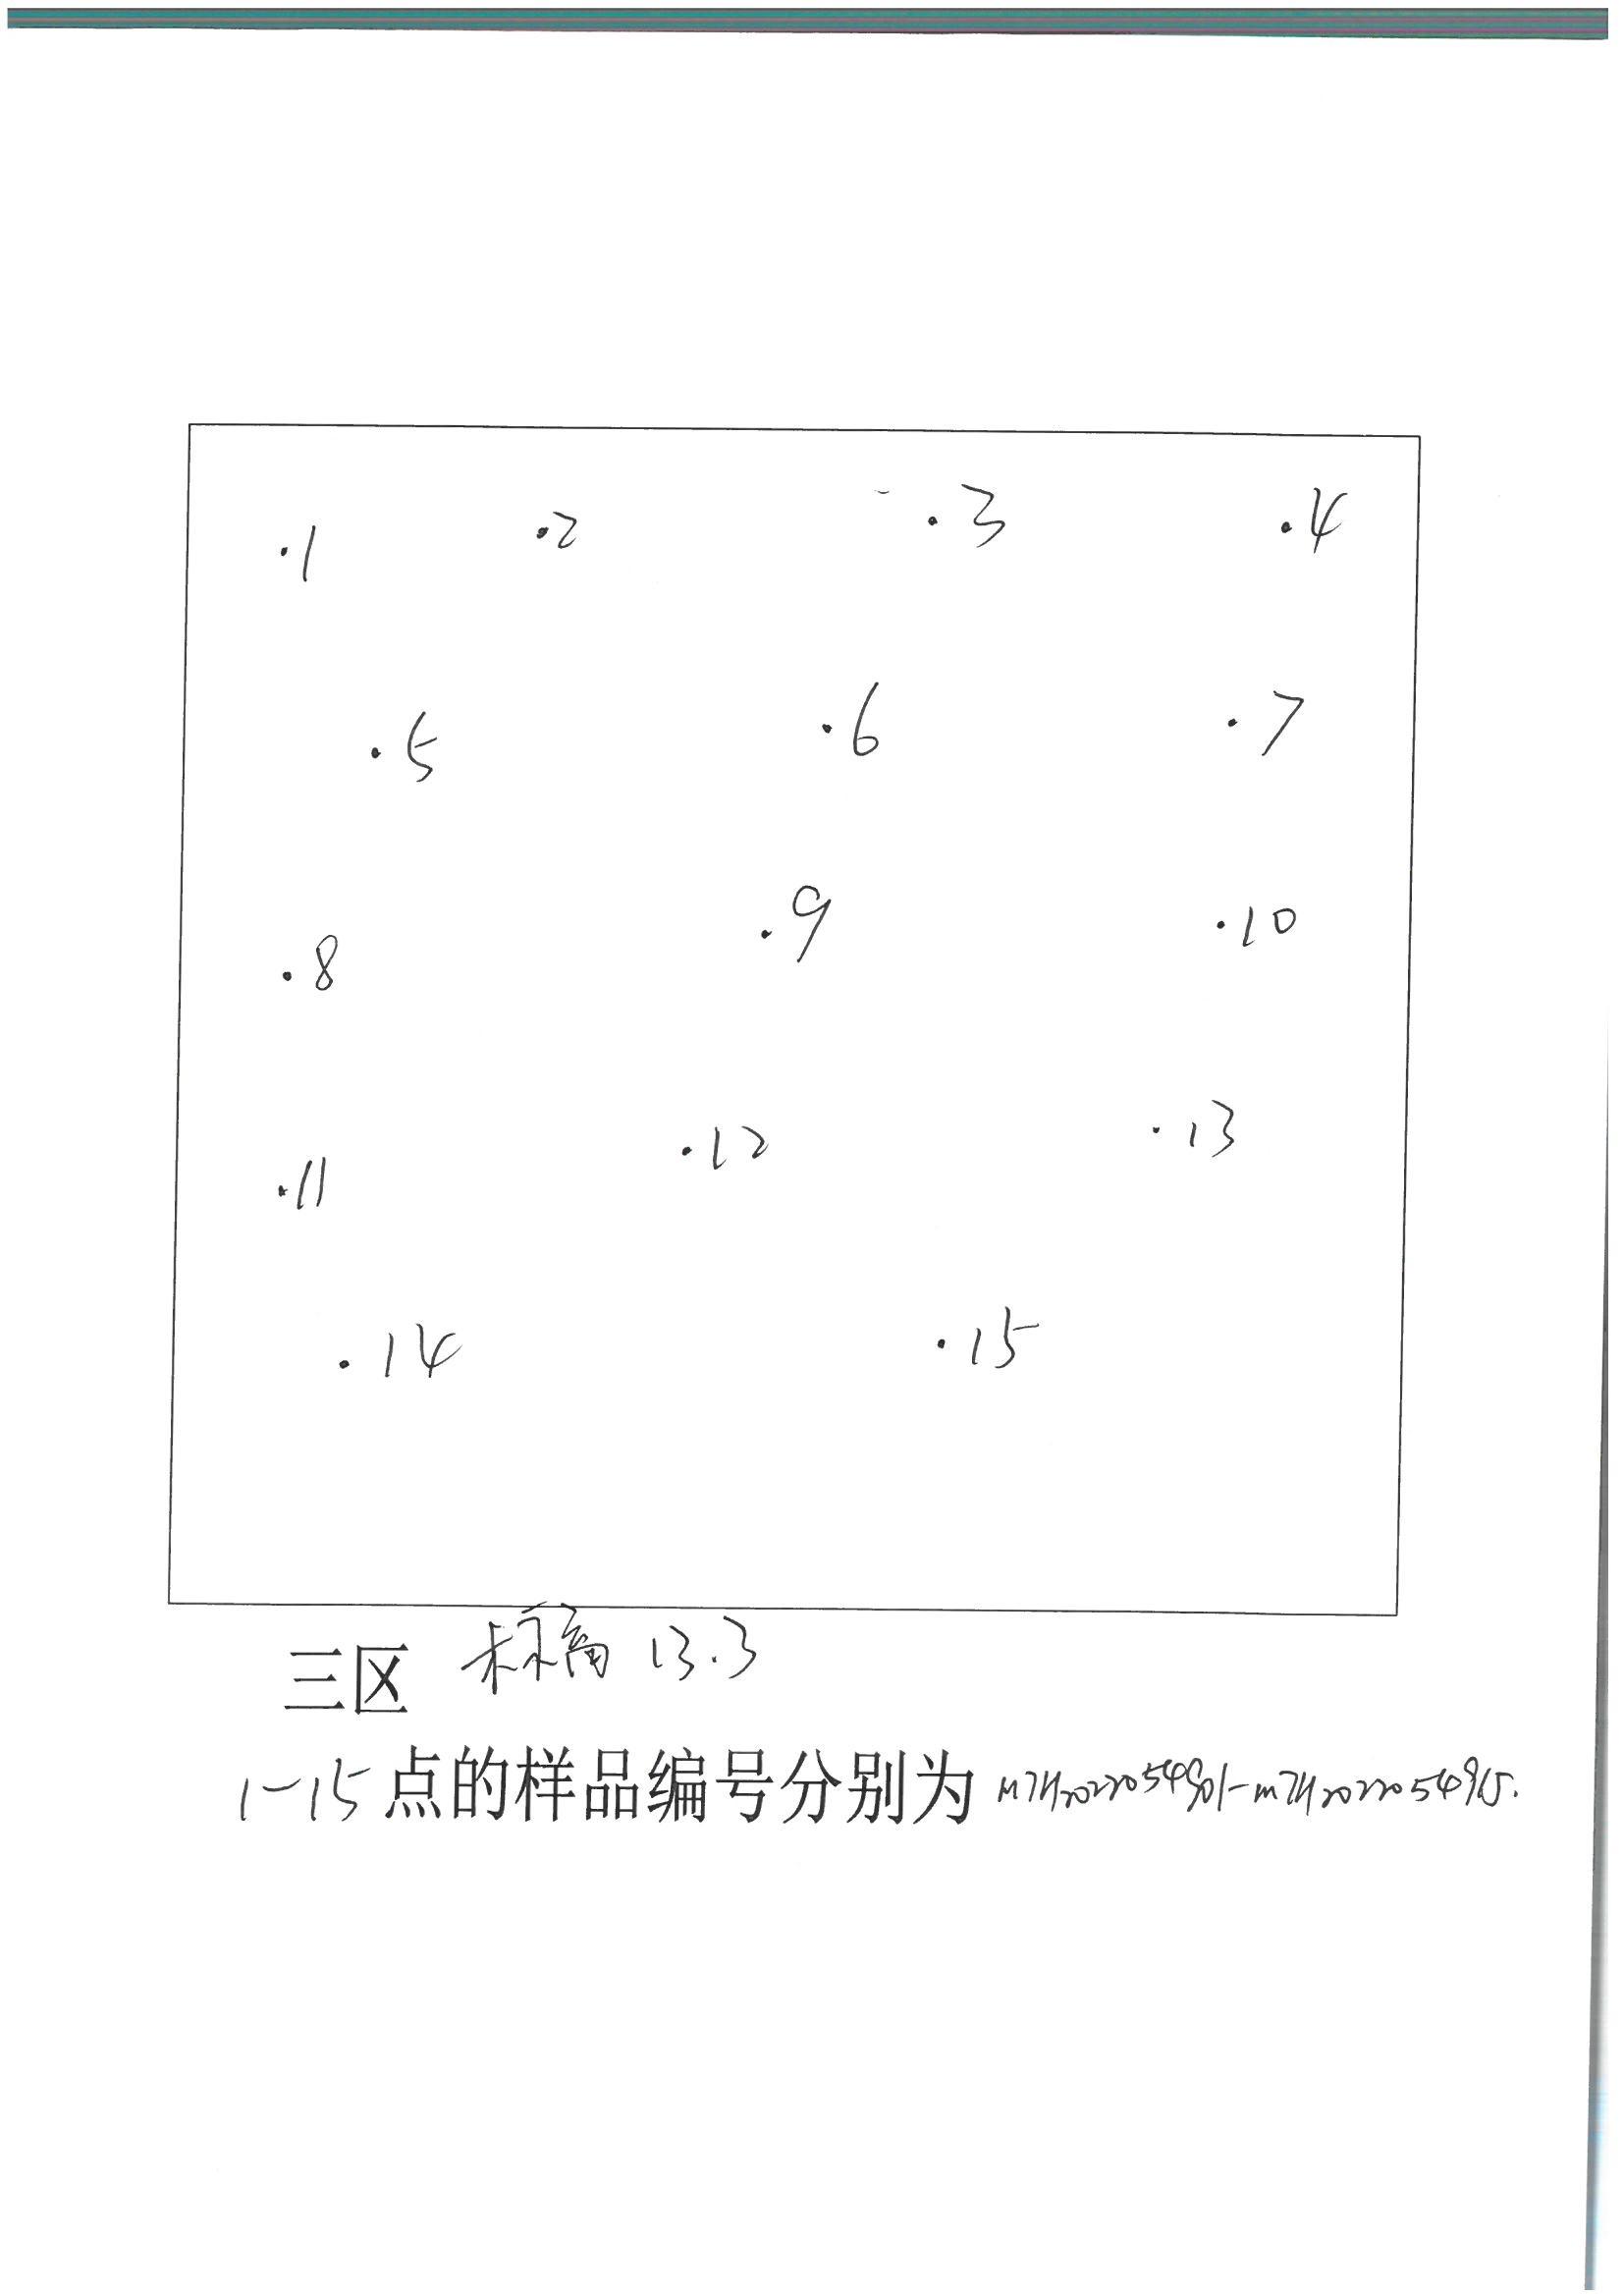 ·1 ·2 ·3 ·4
·5 ·6 ·7
·8 ·9 ·10
·11 ·12 ·13
·14 ·15
三区 标高 13.3
1-15点的样品编号分别为